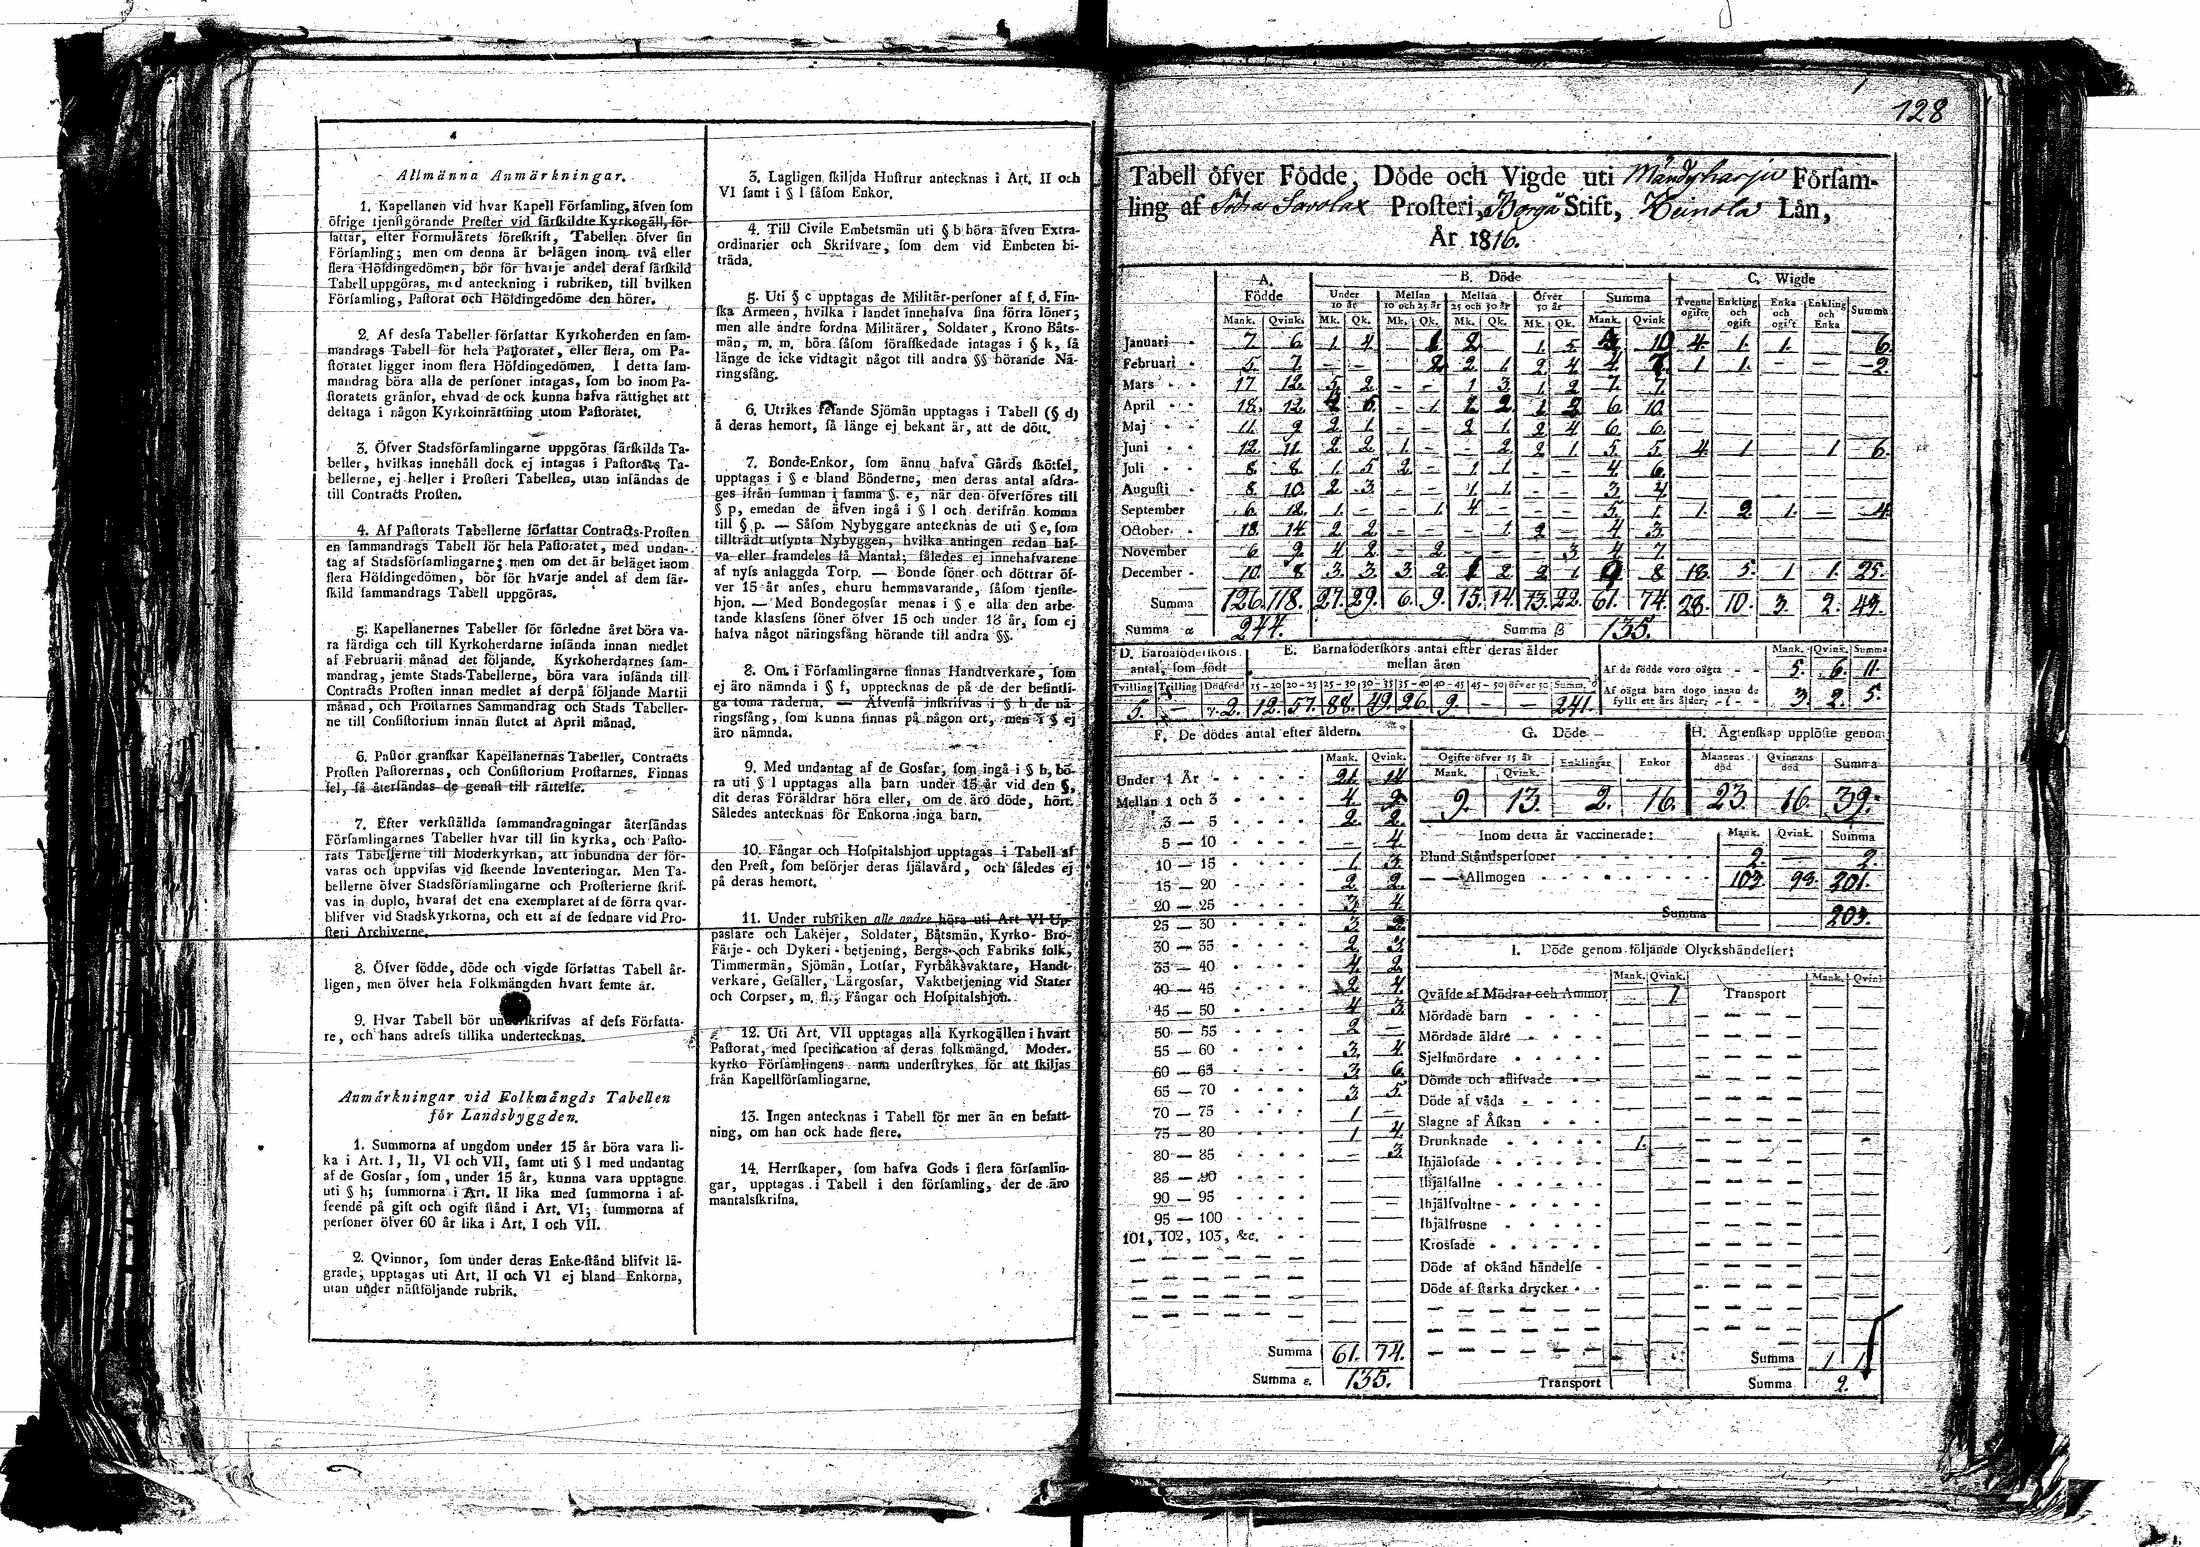 Allmänna Anmärkningar.
1. Kapellanen vid hvar Kapell Församling, äfven som
öfrige tjenstgörande Prester vid särskildte Kyrkogäll, för-
fattar, efter Formulärets föreskrift, Tabellen öfver sin
Församling; men om denna är belägen inom två eller
flera Höfdingedömen, bör för hvarje andel deraf särskild
Tabell uppgöras, med anteckning i rubriken, till hvilken
Församling, Pastorat och Höfdingedöme den hörer.
2. Af dessa Tabeller författar Kyrkoherden en sam-
mandrags Tabell för hela Pastoratet, eller flera, om Pa-
storatet ligger inom flera Höfdingedömen. I detta sam-
mandrag böra alla de personer intagas, som bo inom Pa-
storatets gränsor, ehvad de ock kunna hafva rättighet att
deltaga i någon Kyrkoinrättning utom Pastoratet.
3. Öfver Stadsförsamlingarne uppgöras särskilda Ta-
beller, hvilkas innehåll dock ej intagas i Pastorats Ta-
bellerne, ej heller i Prosteri Tabellen, utan insändas de
till Contracts Prosten.
4. Af Pastorats Tabellerne författar Contracts-Prosten
en sammandrags Tabell för hela Pastoratet, med undan-
tag af Stadsförsamlingarne; men om det är beläget inom
flera Höfdingedömen, bör för hvarje andel af dem sär-
skild sammandrags Tabell uppgöras.
5. Kapellanernes Tabeller för förledne året böra va-
ra färdiga och till Kyrkoherdarne insända innan medlet
af Februarii månad det följande. Kyrkoherdarnes sam-
mandrag, jemte Stads-Tabellerne, böra vara insända till
Contracts Prosten innan medlet af derpå följande Martii
månad, och Prostarnes Sammandrag och Stads Tabeller-
ne till Consistorium innan slutet af April månad.
6. Pastor granskar Kapellanernas Tabeller, Contracts
Prosten Pastorernas, och Consistorium Prostarnes. Finnas
fel, så återsändas de genast till rättelse.
7. Efter verkställda sammandragningar återsändas
Församlingarnes Tabeller hvar till sin kyrka, och Pasto-
rats Tabellerne till Moderkyrkan, att inbundna der för-
varas och uppvisas vid skeende Inventeringar. Men Ta-
bellerne öfver Stadsförsamlingarne och Prosterierne skrif-
vas in duplo, hvaraf det ena exemplaret af de förra qvar-
blifver vid Stadskyrkorna, och ett af de sednare vid Pro-
steri Archiverne.
8. Öfver födde, döde och vigde författas Tabell år-
ligen, men öfver hela Folkmängden hvart femte år.
9. Hvar Tabell bör underskrifvas af dess Författa-
re, och hans adress tillika undertecknas.
Anmärkningar vid Folkmängds Tabellen
för Landsbyggden.
1. Summorna af ungdom under 15 år böra vara li-
ka i Art. I, II, VI och VII, samt uti § l med undantag
af de Gossar, som, under 15 år, kunna vara upptagne
uti § h; summorna i Art. II lika med summorna i af-
seende på gift och ogift stånd i Art. VI; summorna af
personer öfver 60 år lika i Art. I och VII.
2. Qvinnor, som under deras Enke-stånd blifvit lä-
grade, upptagas uti Art. II och VI ej bland Enkorna,
utan under nästföljande rubrik.
3. Lagligen skiljda Hustrur antecknas i Art. II och
VI samt i § l såsom Enkor.
4. Till Civile Embetsmän uti § b höra äfven Extra-
ordinarier och Skrifvare, som dem vid Embeten bi-
träda.
5. Uti § c upptagas de Militär-personer af f. d. Fin-
ska Armeen, hvilka i landet innehafva sina förra löner;
men alle andre fordna Militärer, Soldater, Krono Båts-
män, m. m. böra såsom förafskedade intagas i § k, så
länge de icke vidtagit något till andra §§ hörande Nä-
ringsfång.
6. Utrikes resande Sjömän upptagas i Tabell (§ d)
å deras hemort, så länge ej bekant är, att de dött.
7. Bonde-Enkor, som ännu hafva Gårds skötsel,
upptagas i § e bland Bönderne, men deras antal afdra-
ges ifrån summan i samma §. e, när den öfverföres till
§ p, emedan de äfven ingå i § l och derifrån komma
till § p. — Såsom Nybyggare antecknas de uti § e, som
tillträdt utsynta Nybyggen, hvilka antingen redan haf-
va eller framdeles få Mantal; således ej innehafvarene
af nyss anlaggda Torp. — Bonde söner och döttrar öf-
ver 15 år anses, ehuru hemmavarande, såsom tjenste-
hjon. — Med Bondegossar menas i § e alla den arbe-
tande klassens söner öfver 15 och under 18 år, som ej
hafva något näringsfång hörande till andra §§.
8. Om i Församlingarne finnas Handtverkare, som
ej äro nämnda i § f, upptecknas de på de der befintli-
ga toma raderna. — Äfvenså inskrifvas i § h de nä-
ringsfång, som kunna finnas på någon ort, men i § ej
äro nämnda.
9. Med undantag af de Gossar, som ingå i § h, bö-
ra uti § l upptagas alla barn under 15 år vid den §,
dit deras Föräldrar höra eller, om de äro döde, hört.
Således antecknas för Enkorna inga barn.
10. Fångar och Hospitalshjon upptagas i Tabell af
den Prest, som besörjer deras själavård, och således ej
på deras hemort.
11. Under rubriken alle andre höra uti Art VI Up-
passare och Lakejer, Soldater, Båtsmän, Kyrko- Bro-
Färje- och Dykeri-betjening, Bergs- och Fabriks folk,
Timmermän, Sjömän, Lotsar, Fyrbåksvaktare, Handt-
verkare, Gesäller, Lärgossar, Vaktbetjening vid Stater
och Corpser, m. fl.; Fångar och Hospitalshjon.
12. Uti Art. VII upptagas alla Kyrkogällen i hvart
Pastorat, med specification af deras folkmängd. Moder-
kyrko Församlingens namn understrykes för att skiljas
från Kapellförsamlingarne.
13. Ingen antecknas i Tabell för mer än en befatt-
ning, om han ock hade flere.
14. Herrskaper, som hafva Gods i flera församlin-
gar, upptagas i Tabell i den församling, der de äro
mantalsskrifna.
128
Tabell öfver Födde, Döde och Vigde uti Mändyharju Försam-
ling af Södra Savolax Prosteri, Borgå Stift, Heinola Län,
År 1816.
A. Födde B. Döde C. Wigde
Under 10 år Mellan 10 och 25 år Mellan 25 och 50 år Öfver 50 år Summa Tvenne ogifte Enkling och ogift Enka och ogift Enkling och Enka Summa
Mank. Qvink. Mk. Qk. Mk. Qk. Mk. Qk. Mk. Qk. Mank. Qvink
Januari 7. 6. 1. 4. - 1 2 - 1. 5 10 4. 1. 1. — 6.
Februari 5. 7. — — - 2 2. 1. 2. 4. 4. 1 1. — — 2.
Mars 17. 12. 5. 2. - - 1 3. 1. 2. 7. 7.
April 18. 12. - 1. 2. 1 2 6. 10.
Maj 11. 9. 2. 1. - - 2. 1. 2. 4. 6. 6.
Juni 12. 11. 2. 2. 1. - - 2. 2. 1. 5. 5. 4. 1. 1. 6.
Juli 8. 8. 1. 5. 2. - 1. 1. - - 4. 6.
Augusti 8. 10. 2. 3. - - 1. 1. - - 3. 4.
September 6. 12. 1. - - 1. 4. - - - 5. 1. 1. 2. 1. — 4.
October 18. 14. 2. 2. - - - 1. 2. - 4. 3.
November 6. 9. 4. 2. - 2. - - - 3. 4. 7.
December 10. 8. 3. 3. 3. 2. 1 2. 2. 1. 8. 18. 5. 1 1. 25.
Summa 126. 118. 27. 29. 6. 9. 15. 14. 13. 22. 61. 74. 28. 10. 3. 2. 43.
Summa α 244. Summa β 135.
D. Barnaföderskors antal, som födt
Tvilling Trilling Dödfödd
5. — 2.
E. Barnaföderskors antal efter deras ålder mellan åren
15-20 20-25 25-30 30-35 35-40 40-45 45-50 öfver 50 Summa
12. 57. 88. 49. 26. 9. — — 241.
Mank. Qvink. Summa
Af de födde voro oägta 5. 6. 11.
Af oägta barn dogo innan de fyllt ett års ålder 3. 2. 5.
F. De dödes antal efter åldern.
Mank. Qvink.
Under 1 År 21. 14.
Mellan 1 och 3 4.
3 — 5 2. 2.
5 — 10 - 4.
10 — 15 1. 3.
15 — 20 2. 2.
20 — 25 3. 4.
25 — 30 3.
30 — 35 2. 3.
35 — 40 4. 2.
40 — 45 2. 4.
45 — 50 4. 3.
50 — 55 2. —
55 — 60 3. 4.
60 — 65 3. 6.
65 — 70 3. 5.
70 — 75 1. —
75 — 80 1. 4.
80 — 85 — 3.
85 — 90
90 — 95
95 — 100
101, 102, 103, &c.
Summa 61. 74.
Summa ε. 135.
G. Döde
Ogifte öfver 15 år Enklingar Enkor
Mank. Qvink.
9. 13. 2. 16.
H. Ägtenskap upplöste genom
Mannens död Qvinnans död Summa
23. 16. 39.
Inom detta år vaccinerade: Mank. Qvink. Summa
Bland Ståndspersoner 2. — 2.
— — Allmogen 103. 98. 201.
Summa 203.
I. Döde genom följande Olyckshändelser:
Mank. Qvink. Mank. Qvink
Qväfde af Mödrar och Ammor — 1 Transport
Mördade barn
Mördade äldre
Sjelfmördare
Dömde och aflifvade
Döde af våda
Slagne af Åskan
Drunknade 1.
Ihjälosade
Ihjälfallne
Ihjälsvultne
Ihjälfrusne
Krossade
Döde af okänd händelse
Döde af starka drycker
Summa 1 1
Transport Summa 2.